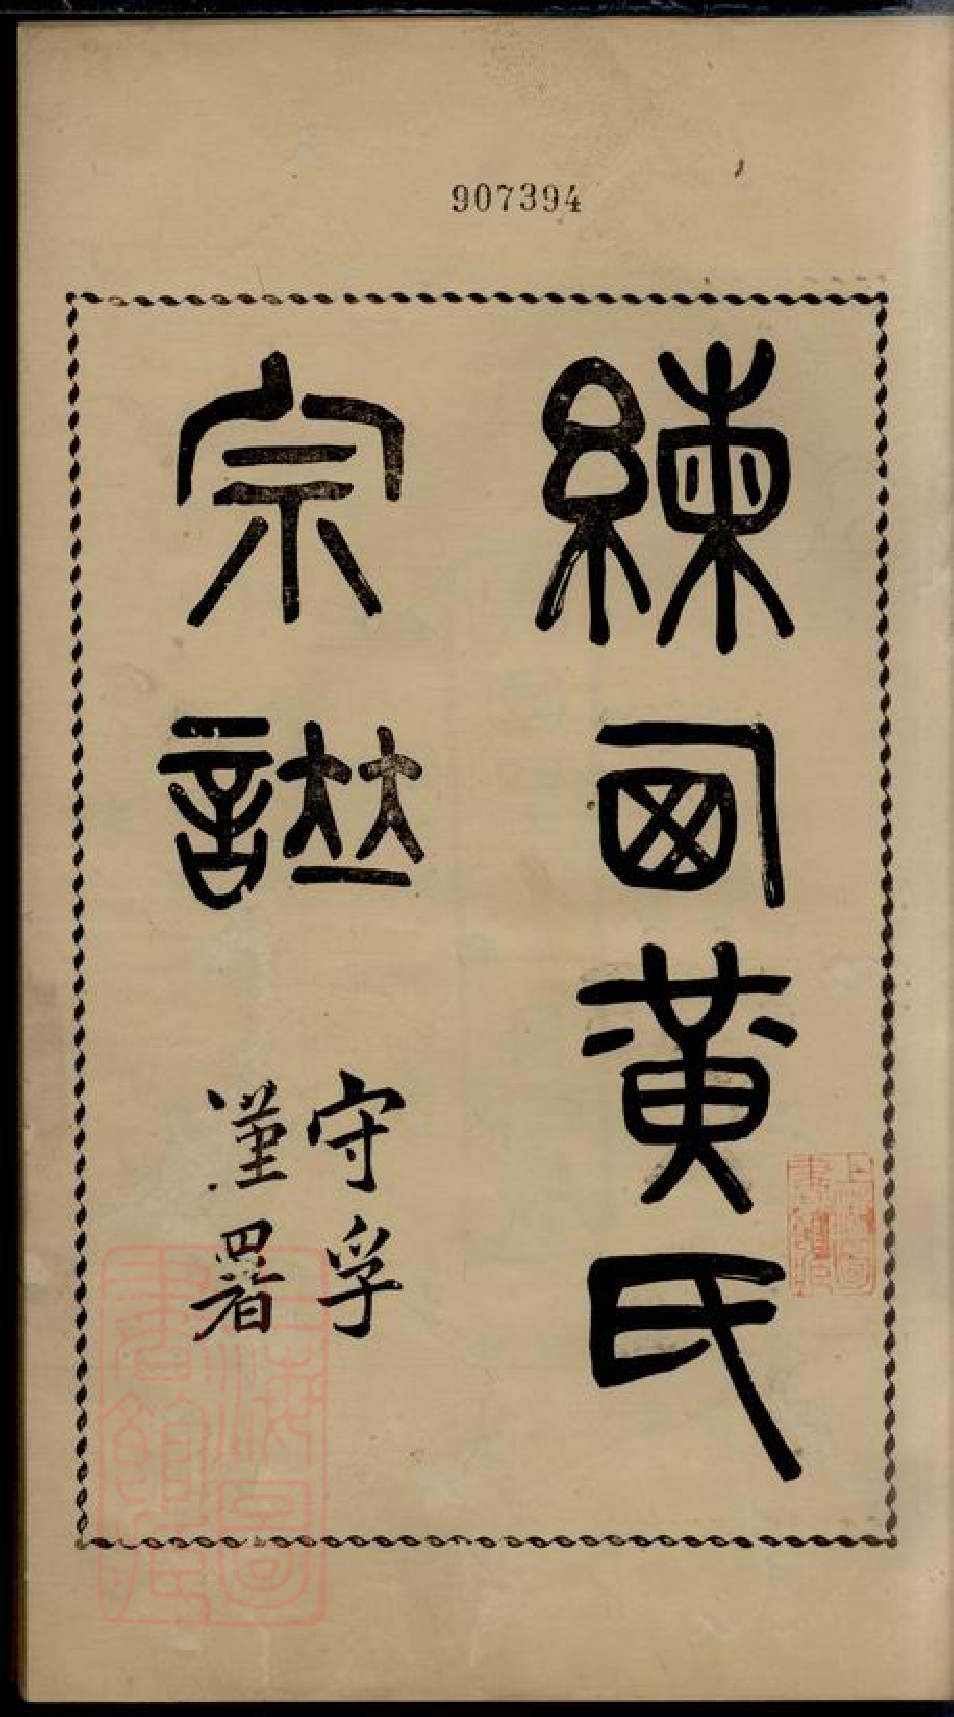 907394
練西黃氏
宗譜
守孚
謹署
上海圖
書館藏
上海圖
書館藏